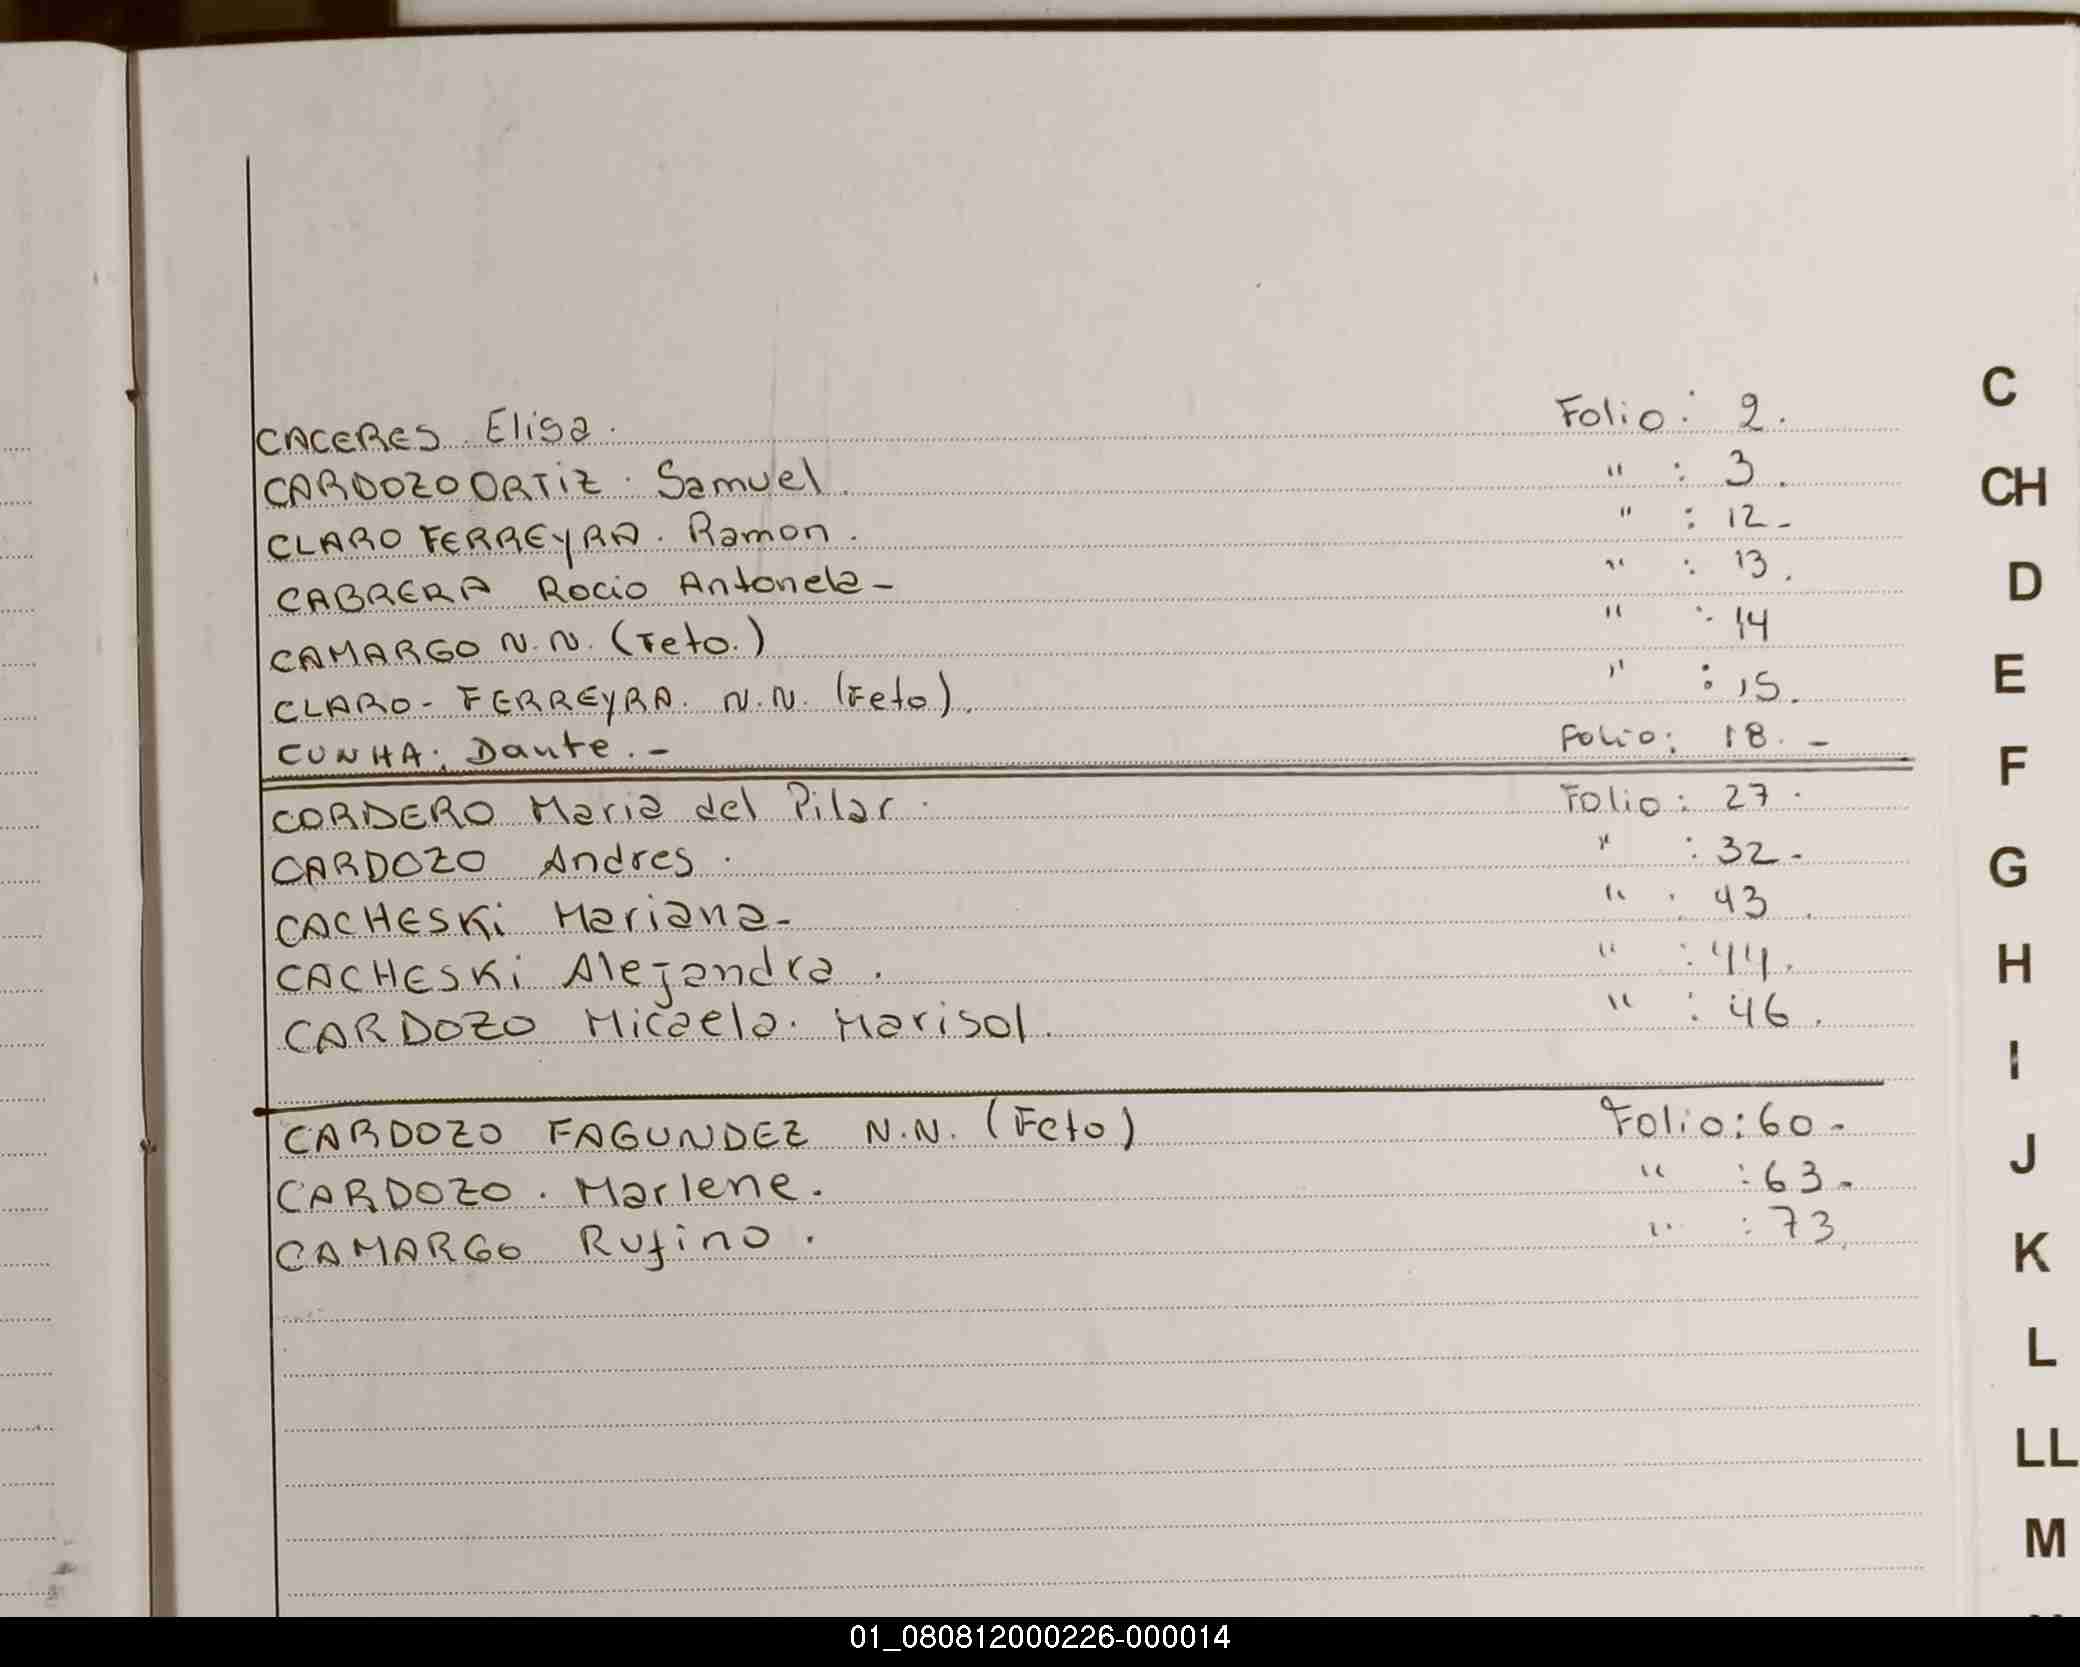 CACERES. Elisa. Folio: 2.
CARDOZO ORTIZ. Samuel. " : 3.
CLARO FERREYRA. Ramon. " : 12-
CABRERA Rocio Antonela- " : 13.
CAMARGO N.N. (Feto.) " : 14
CLARO- FERREYRA. N.N. (Feto). " : 15.
CUNHA: Dante.- Folio: 18.-
CORDERO Maria del Pilar. Folio: 27.
CARDOZO Andres. " : 32-
CACHESKi Mariana- " . 43.
CACHESKi Alejandra. " : 44.
CARDOZO Micaela. Marisol. " : 46.
CARDOZO FAGUNDEZ N.N. (Feto) Folio: 60-
CARDOZO. Marlene. " : 63-
CAMARGO Rufino. " : 73.
C
CH
D
E
F
G
H
I
J
K
L
LL
M
01_080812000226-000014